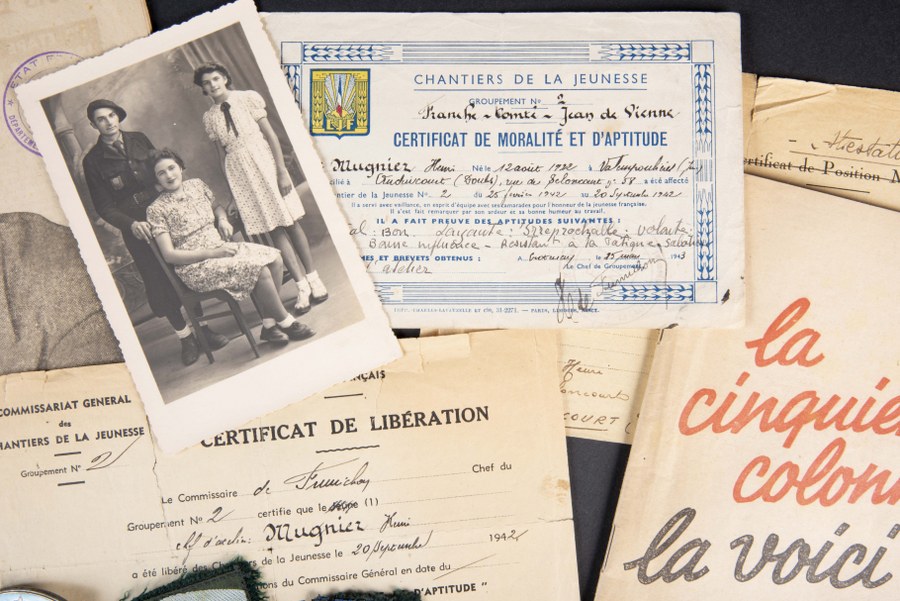 ETAT
CHANTIERS DE LA JEUNESSE
GROUPEMENT No 2
Franche-Comté - Jean de Vienne
CERTIFICAT DE MORALITÉ ET D'APTITUDE
Mugnier Henri Né le 12 août 1922 à
à Audincourt (Doubs), rue de Belomcourt no 58 a été affecté
ntier de la Jeunesse No 2 du 25 février 1942 au 20 Septembre 1942
Il a servi avec vaillance, en esprit d'équipe avec ses camarades pour l'honneur de la jeunesse française.
Il s'est fait remarquer par son ardeur et sa bonne humeur au travail.
IL A FAIT PREUVE DES APTITUDES SUIVANTES :
al : Bon Loyauté : Irréprochable Volonté :
Bonne influence - Résistant à la fatigue
MES ET BREVETS OBTENUS : A le 25 1943
d'atelier Le Chef du Groupement,
PARIS, LIMOGES, NANCY.
Attestat
ertificat de Position M
Henri
COURT
la
cinquiè
colonn
la voici
COMMISSARIAT GENERAL
des
HANTIERS DE LA JEUNESSE
Groupement No 2
NÇAIS
CERTIFICAT DE LIBÉRATION
Le Commissaire de Chef du
Groupement No 2 certifie que le (1)
chef d'atelier Mugnier Henri
a été libéré des Chantiers de la Jeunesse le 20 Septembre 1942
ons du Commissaire Général en date du
D'APTITUDE "